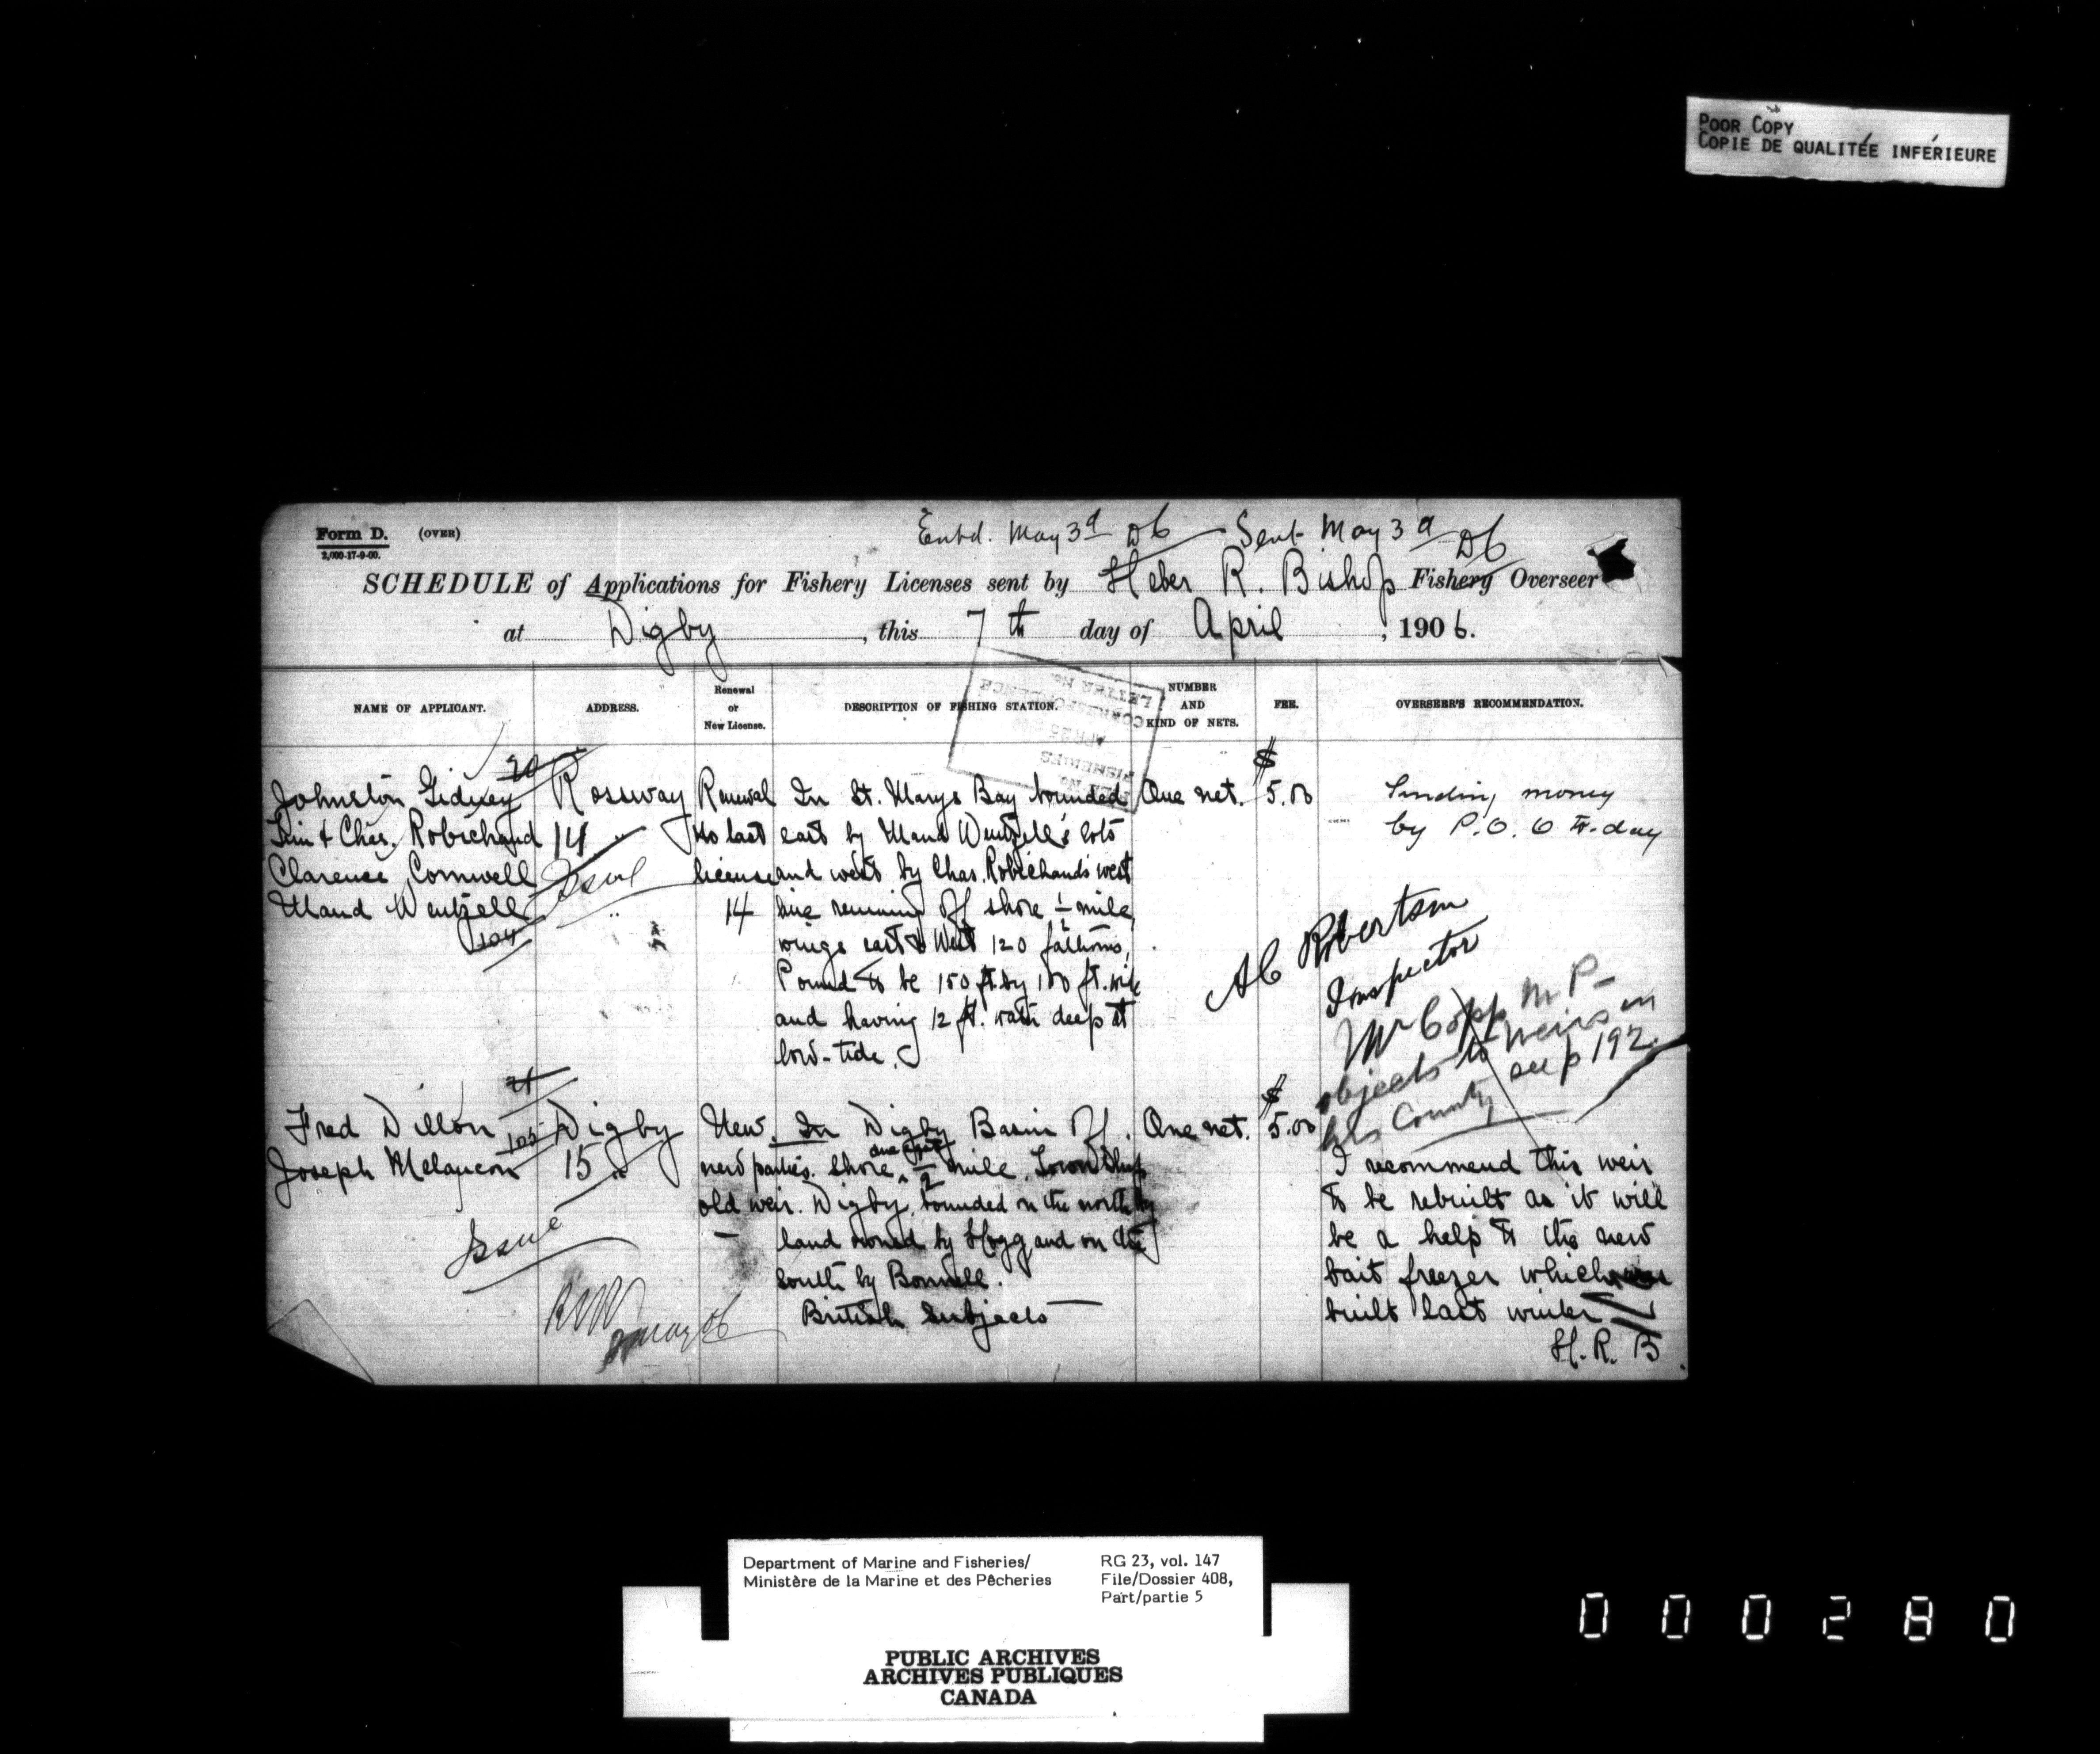 POOR COPY
COPIE DE QUALITÉE INFÉRIEURE
Form D. (OVER)
2,000-17-9-00.
Entd. May 3d 06 Sent May 3d 06
SCHEDULE of Applications for Fishery Licenses sent by Heber R. Bishop Fishery Overseer
at Digby, this 7th day of April, 1906.
NAME OF APPLICANT.
ADDRESS.
Renewal
or
New License.
DESCRIPTION OF FISHING STATION.
NUMBER
AND
KIND OF NETS.
FEE.
OVERSEER'S RECOMMENDATION.
LETTER No.
CORRESPONDENCE
FISHERIES
20
Johnston Gidney
& Chas. Robichaud
Clarence Cornwell
Maud Wentzell
104
Rossway
14 "
Issue
"
Renewal
No last
license
14
In St. Marys Bay bounded
east by Maud Wentzell's lots
and west by Chas. Robichaud's west
line running off shore ½ mile,
wings east & West 120 fathoms,
Pound to be 150 ft. by 100 ft. wide
and having 12 ft. water deep at
low-tide.
One net.
$
5.00
Sending money
by P.O.O to-day
A C Robertson
Inspector
Mr Copp M P-
objects to weirs in
his County see p 192
21
Fred Dillon
Joseph Melancon
105
Digby
15 "
Issue
May 06
New.
new parties.
old weir.
In Digby Basin off
shore, one half ½ mile. Township
Digby, bounded on the north by
land owned by Hogg and on the
south by Bonnell.
British Subjects
One net.
$
5.00
I recommend this weir
to be rebuilt as it will
be a help to the new
bait freezer which was
built last winter
H. R. B
Department of Marine and Fisheries/
Ministère de la Marine et des Pêcheries
RG 23, vol. 147
File/Dossier 408,
Part/partie 5
PUBLIC ARCHIVES
ARCHIVES PUBLIQUES
CANADA
000280